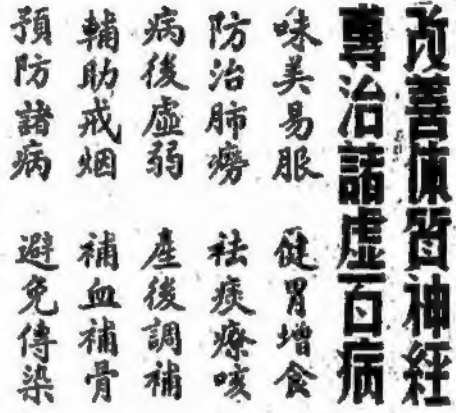 改善体質神経
専治諸虛百病
味美易服 健胃增食
防治肺癆 祛痰療咳
病後虛弱 產後調補
輔助戒烟 補血補骨
預防諸病 避免傳染